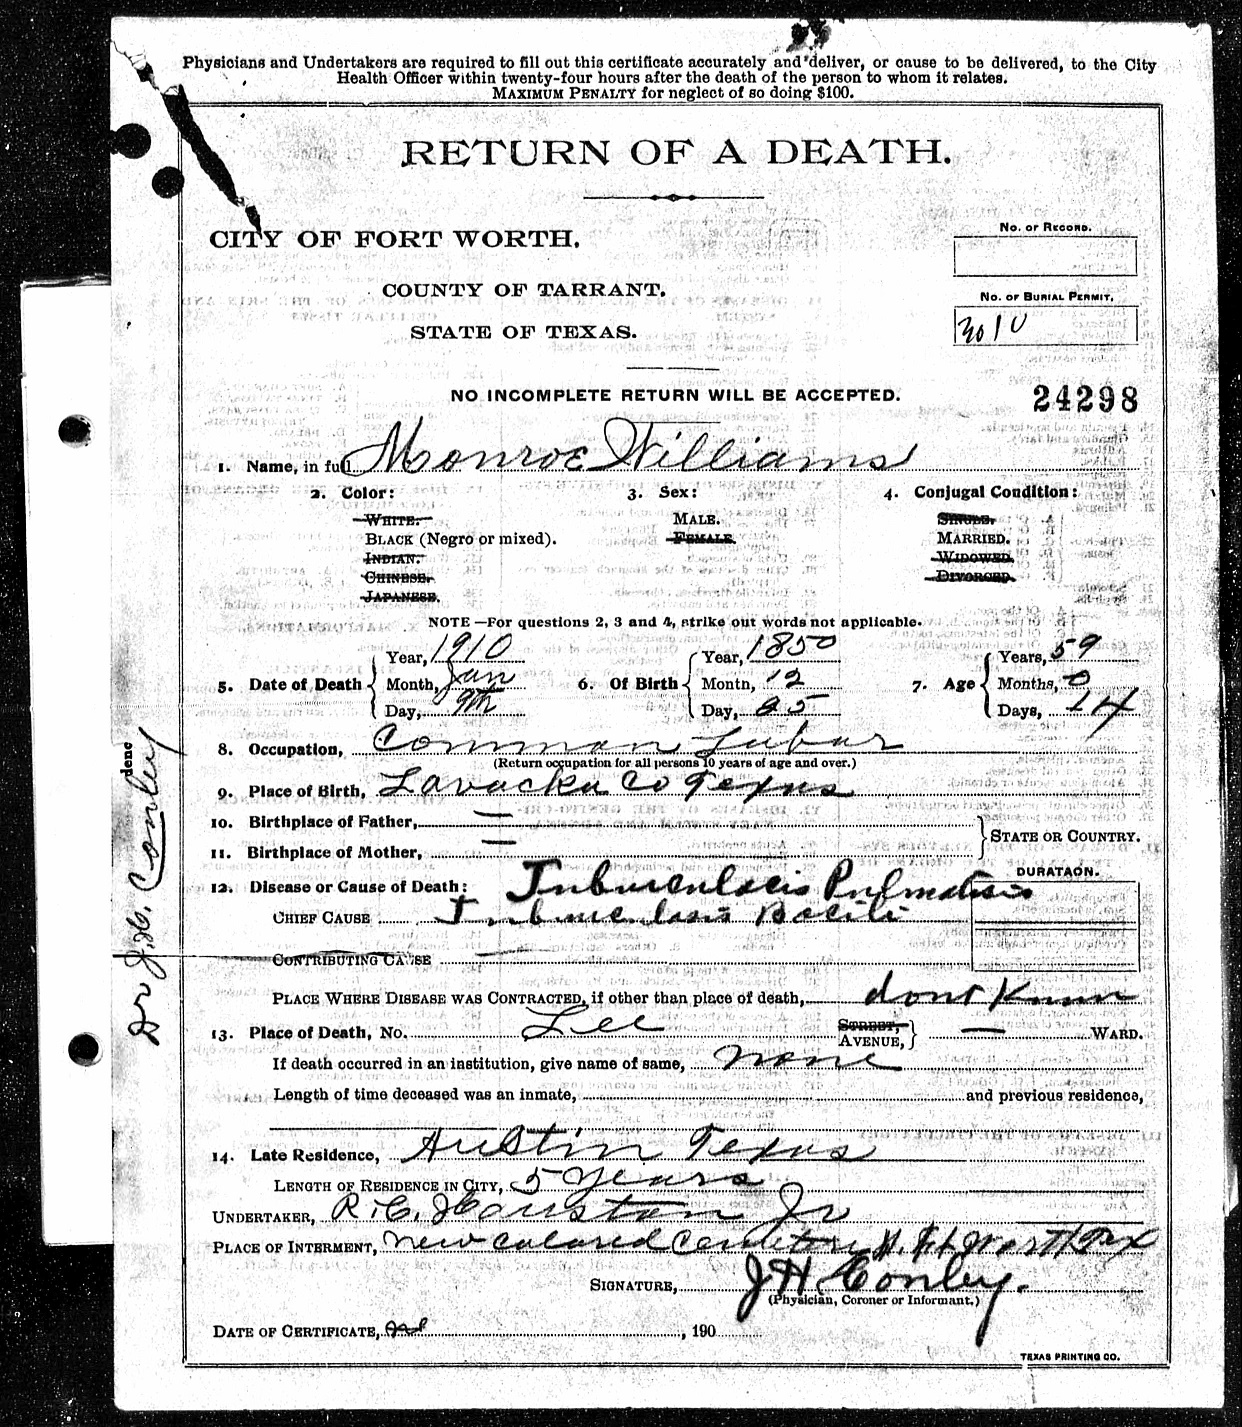 Physicians and Undertakers are required to fill out this certificate accurately and deliver, or cause to be delivered, to the City
Health Officer within twenty-four hours after the death of the person to whom it relates.
MAXIMUM PENALTY for neglect of so doing $100.
RETURN OF A DEATH.
CITY OF FORT WORTH,
COUNTY OF TARRANT,
STATE OF TEXAS.
No. of Record.
No. of Burial Permit,
3010
NO INCOMPLETE RETURN WILL BE ACCEPTED.
24298
1. Name, in full Monroe Williams
2. Color: 3. Sex: 4. Conjugal Condition:
WHITE. MALE. SINGLE.
BLACK (Negro or mixed). FEMALE. MARRIED.
INDIAN. WIDOWED.
CHINESE. DIVORCED.
JAPANESE.
NOTE—For questions 2, 3 and 4, strike out words not applicable.
Year, 1910 Year, 1850 Years, 59
5. Date of Death Month, Jan 6. Of Birth Month, 12 7. Age Months, 0
Day, 9th Day, 25 Days, 14
8. Occupation, Common Labor
(Return occupation for all persons 10 years of age and over.)
9. Place of Birth, Lavacka Co Texas
10. Birthplace of Father, —
11. Birthplace of Mother, —
STATE OR COUNTRY.
DURATAON.
12. Disease or Cause of Death: Tuberculosis Pulmonalis
CHIEF CAUSE Tuberculosis Bacili
CONTRIBUTING CAUSE —
PLACE WHERE DISEASE WAS CONTRACTED, if other than place of death, dont Know
13. Place of Death, No. Lee STREET, AVENUE, — WARD.
If death occurred in an institution, give name of same, none
Length of time deceased was an inmate, and previous residence,
14. Late Residence, Austin Texas
LENGTH OF RESIDENCE IN CITY, 5 Years
UNDERTAKER, R.C. Houston Jr
PLACE OF INTERMENT, New Colored Cemetery N. Ft Worth Tex
SIGNATURE, J H Conley.
(Physician, Coroner or Informant.)
DATE OF CERTIFICATE, , 190
TEXAS PRINTING CO.
dene
Dr J.H. Conley